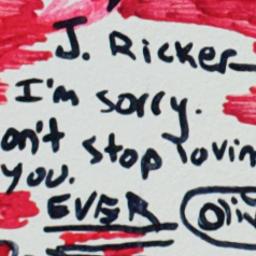 J. Ricker
I'm sorry.
on't stop lovin
you.
EVER
Oliv